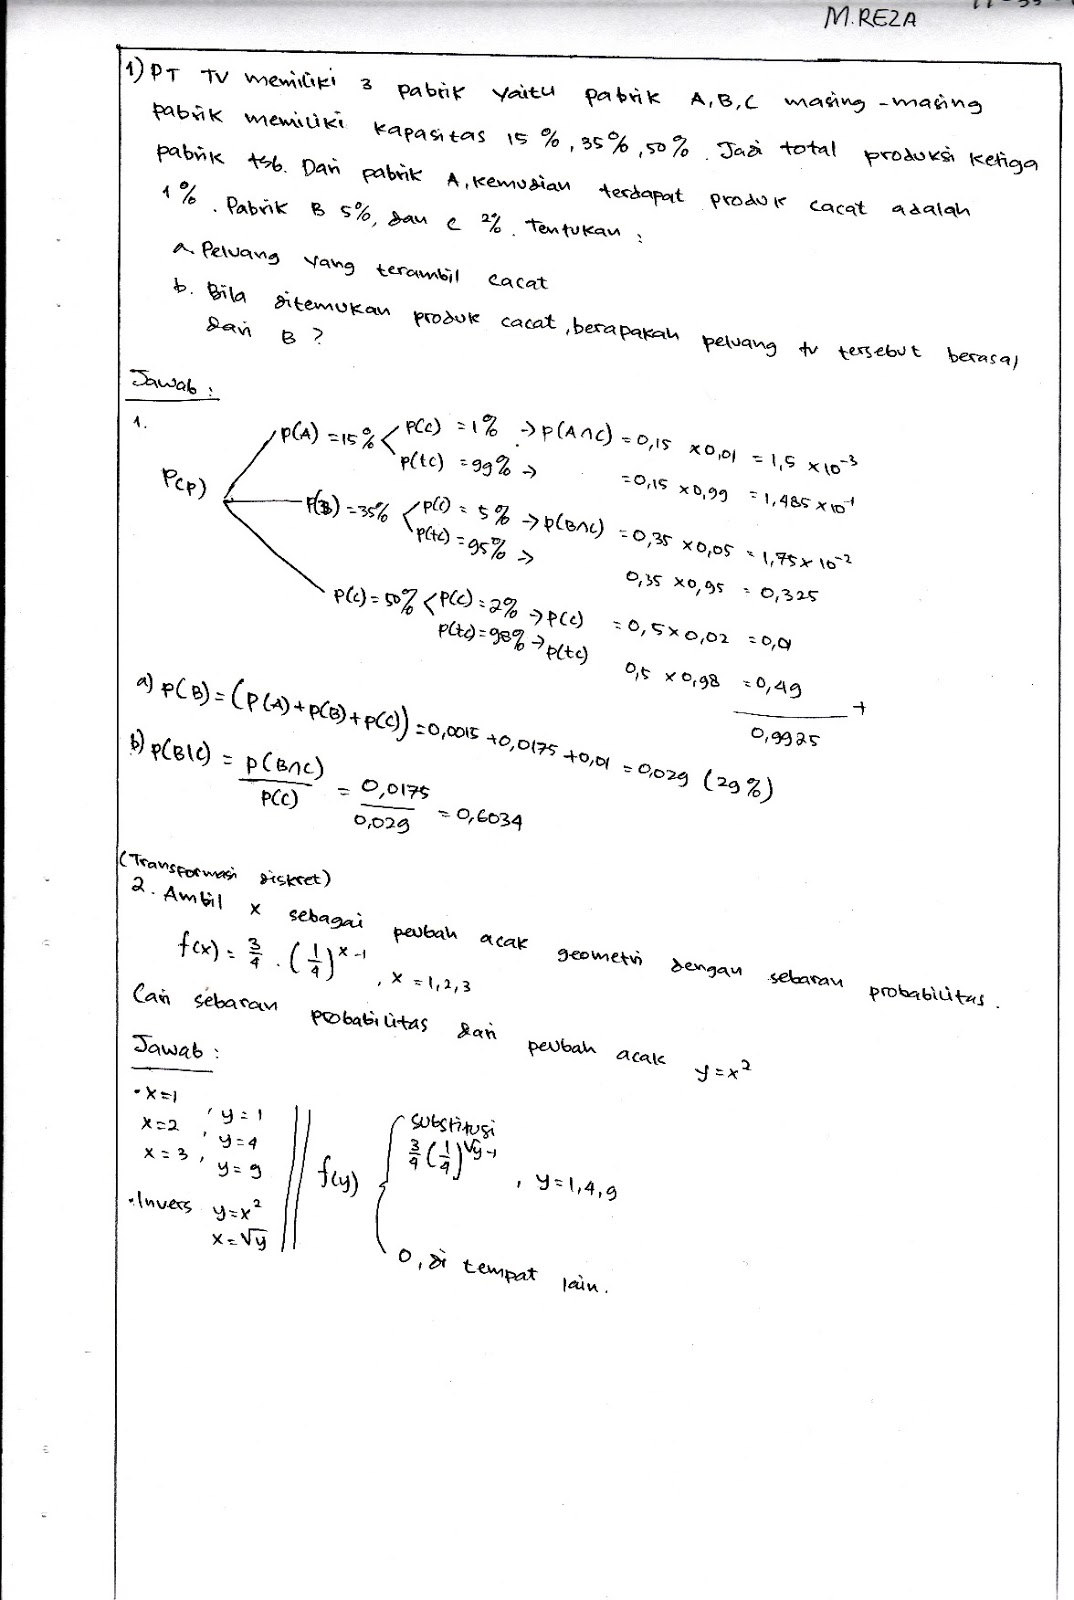 M.REZA
1) PT TV memiliki 3 pabrik yaitu pabrik A, B, C masing-masing
pabrik memiliki kapasitas 15 %, 35%, 50%. Jadi total produksi ketiga
pabrik tsb. Dari pabrik A, kemudian terdapat produk cacat adalah
1%. Pabrik B 5%, dan C 2%. Tentukan :
a. Peluang yang terambil cacat
b. Bila ditemukan produk cacat, berapakah peluang tv tersebut berasal
dari B ?
Jawab :
1.
P(A) = 15% < P(C) = 1% → P(A∩C) = 0,15 x 0,01 = 1,5 x 10⁻³
P(tc) = 99% → = 0,15 x 0,99 = 1,485 x 10⁻¹
P(P)
P(B) = 35% < P(C) = 5% → P(B∩C) = 0,35 x 0,05 = 1,75 x 10⁻²
P(tc) = 95% → 0,35 x 0,95 = 0,325
P(C) = 50% < P(C) = 2% → P(C) = 0,5 x 0,02 = 0,01
P(tc) = 98% → P(tc) 0,5 x 0,98 = 0,49
+
0,9925
a) P(B) = (P(A) + P(B) + P(C)) = 0,0015 + 0,0175 + 0,01 = 0,029 (29%)
b) P(B|C) = P(B∩C) / P(C) = 0,0175 / 0,029 = 0,6034
(Transformasi diskret)
2. Ambil x sebagai peubah acak geometri dengan sebaran probabilitas.
f(x) = 3/4 . (1/4)^x-1, x = 1,2,3
Cari sebaran probabilitas dari peubah acak y = x²
Jawab :
• x = 1, y = 1
x = 2, y = 4
x = 3, y = 9
• Invers y = x²
x = √y
f(y)
substitusi
3/4 (1/4)^√y-1, y = 1,4,9
0, di tempat lain.